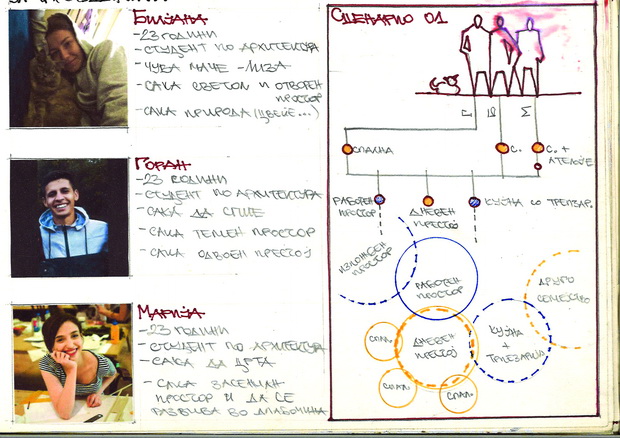 Билјана
- 23 години
- студент по архитектура
- чува маче - Лиза
- сака светол и отворен
простор
- сака природа (цвеќе...)
Горан
- 23 години
- студент по архитектура
- сака да спие
- сака темен простор
- сака одвоен престој
Марија
- 23 години
- студент по архитектура
- сака да црта
- сака засенчан
простор и да се
развива во длабочина
Сценарио 01
Г
Б
М
спална
с.
с. +
ателје
работен
простор
дневен
престој
кујна со трпезар.
изложбен
простор
работен
простор
друго
семејство
дневен
престој
кујна
+
трпезарија
спал.
спал.
спал.